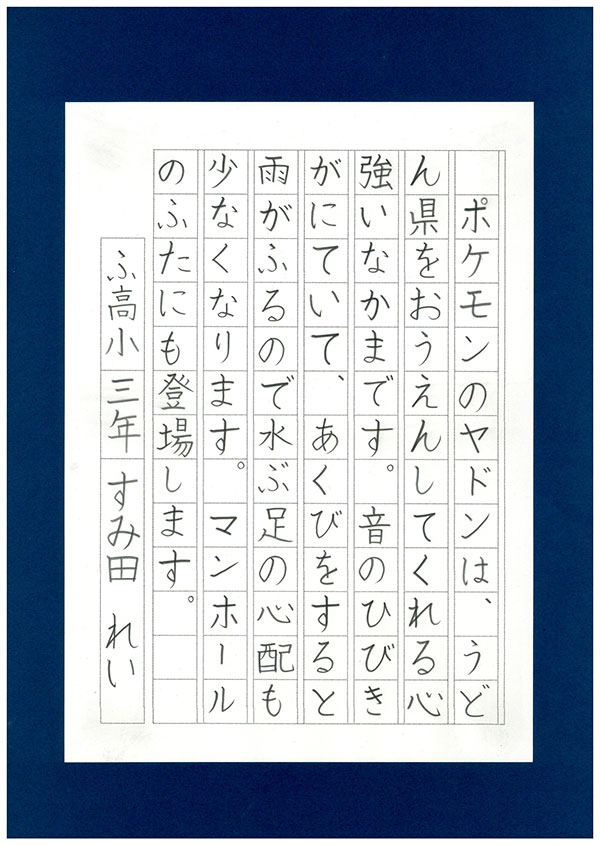 ポケモンのヤドンは、うど
ん県をおうえんしてくれる心
強いなかまです。音のひびき
がにていて、あくびをすると
雨がふるので水ぶ足の心配も
少なくなります。マンホール
のふたにも登場します。
ふ高小 三年 すみ田 れい